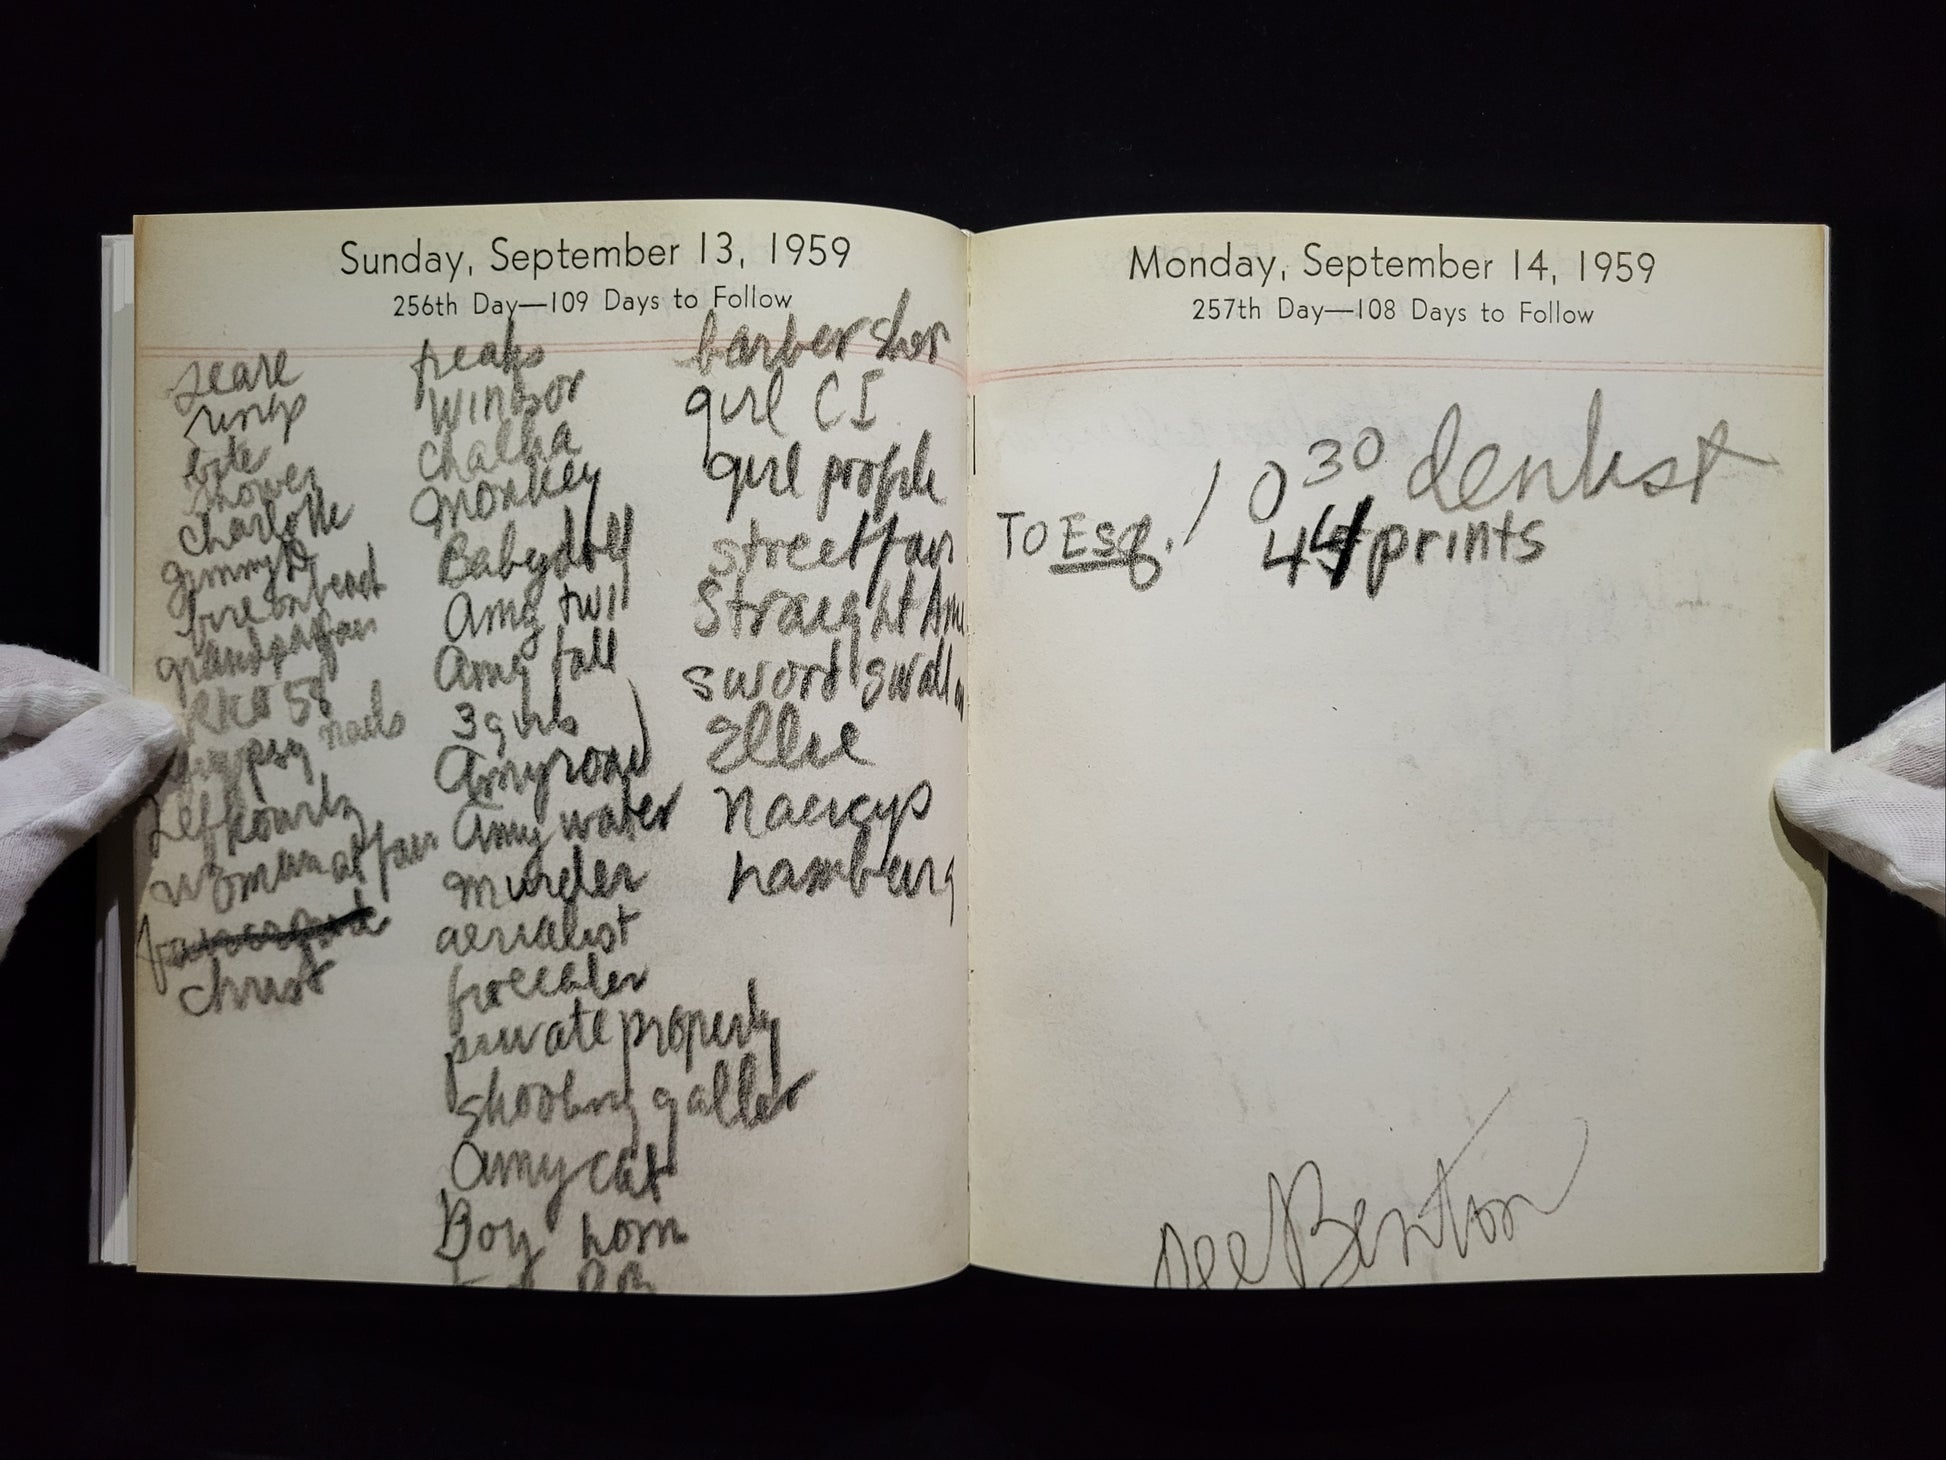 Sunday, September 13, 1959
256th Day—109 Days to Follow
scare
rings
bite
shower
Charlotte
fire on beach
grandpa fair
RKO 58
gypsy nails
Lefkowitz
woman at fair
Christ
freaks
Windsor
Monkey
Babydoll
Amy twil
Amy fall
3 girls
Amy road
Amy water
Murder
aerialist
fireeater
private property
shooting galler
Amy cat
Boy horn
barber shop
girl CI
girl profile
street fair
Straight Arm
sword swallow
Ellie
hamburg
Monday, September 14, 1959
257th Day—108 Days to Follow
10 30 dentist
To Esq. / 44 prints
Dee Benton